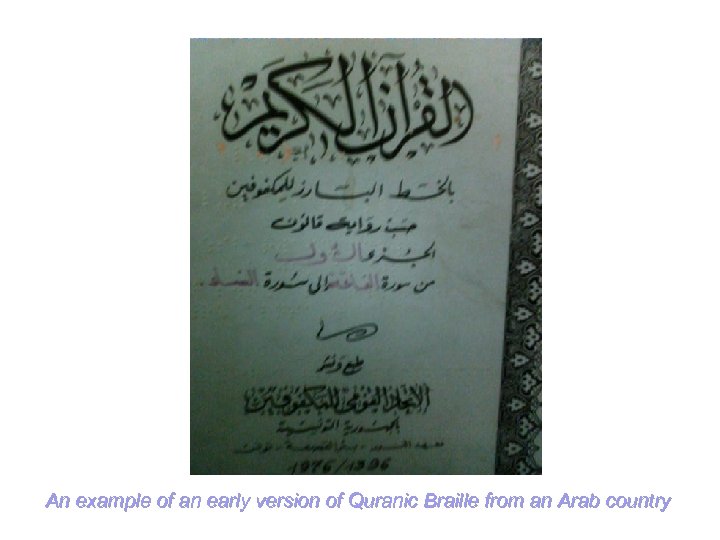 القرآن الكريم
بالخط البارز للمكفوفين
حسب رواية قالون
الجزء الأول
من سورة الفاتحة إلى سورة النساء
طبع ونشر
الاتحاد القومي للمكفوفين
بالجمهورية التونسية
1976/1396
An example of an early version of Quranic Braille from an Arab country